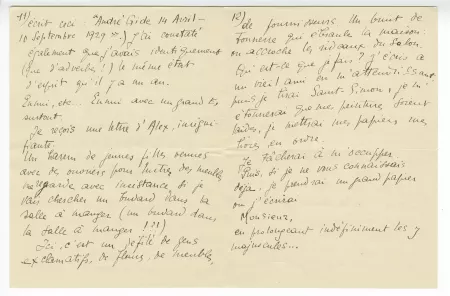 11)
écrit ceci "André Gide 14 Avril -
10 Septembre 1929".) J'ai constaté
également que j'avais identiquement
(que d'adverbes!) le même état
d'esprit qu'il y a un an.
Ennui, etc... Ennui avec un grand E
surtout.
Je reçois une lettre d'Alex, insigni-
fiante.
Un essaim de jeunes filles venues
avec des ouvriers pour mettre des meubles
me regarde avec insistance, si je
vais chercher un buvard dans la
salle à manger (un buvard dans
la salle à manger !!!)
Ici, c'est un défilé de gens
exclamatifs, de fleurs, de meubles,
12)
de fournisseurs. Un bruit de
tonnerre qui ébranle la maison:
on accroche les rideaux du salon.
Qu'est-ce que je fais? J'écris à
un vieil ami en m'attendrissant
puis je lirai Saint-Simon, je m'
étonnerai que ma peinture soient
vides, je mettrai mes papiers mes
livres en ordre.
Je tâcherai à m'occuper.
Puis, si je ne vous connaissais
déjà, je prendrai un grand papier
où j'écrirai
Monsieur,
en prolongeant indéfiniment les y
majuscules...